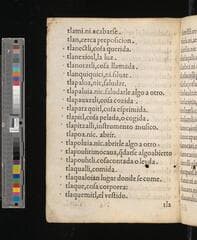 tlami.ni.acabarse.
tlan, cerca preposicion.
tlanectli, cosa querida.
tlanextiotl, la luz.
tlanotzalli, cosa llamada.
tlanquiquici, ni. siluar.
tlapaloa, nic, saludar.
tlapaluia. nic. saludarle algo a otro.
tlapauaxtli, cosa cozida.
tlapatzquitl, cosa esprimida.
tlapitl, cosa pelada, o cogida.
tlapitzalli, instrumento musico.
tlapoa. nic. abrir.
tlapoluia. nic. abrirle algo a otro.
tlapouhtimocaua, q̃darse algo abierto
tlapouhtli. cosa contada o leyda.
tlaqualli, comida.
tlaqualoian lugar donde se come.
tlaque, cosa corporea:
tlaquemitl, el vestido.